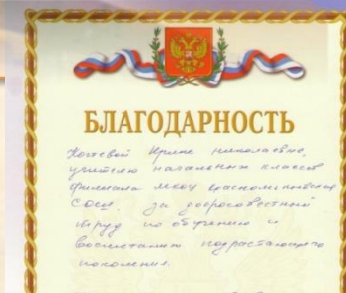 БЛАГОДАРНОСТЬ
Ирине Николаевне,
учителю начальных классов
филиала МКОУ
СОШ. за добросовестный
труд по обучению и
воспитанию подрастающего
поколения.